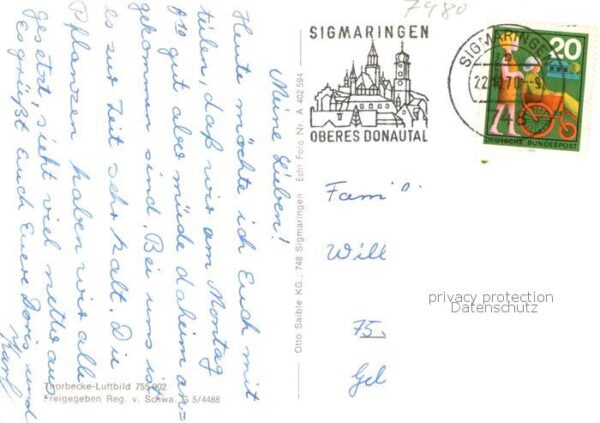 7480
SIGMARINGEN
OBERES DONAUTAL
SIGMARINGEN
20
DEUTSCHE BUNDESPOST
Meine Lieben!
Heute möchte ich Euch mit=
teilen, daß wir am Montag
gut aber müde daheim an=
gekommen sind. Bei uns ist
es zur Zeit sehr kalt. Die
Pflanzen haben wir alle
gesetzt, sieht viel netter aus
Es grüßt Euch Euere Doris und
Karl
Otto Saible KG., 748 Sigmaringen Echt Foto Nr. A 402 594
Fam.
Will
75.
Gel
privacy protection
Datenschutz
Thorbecke-Luftbild 755 902
Freigegeben Reg. v. Schwa. G 5/4488